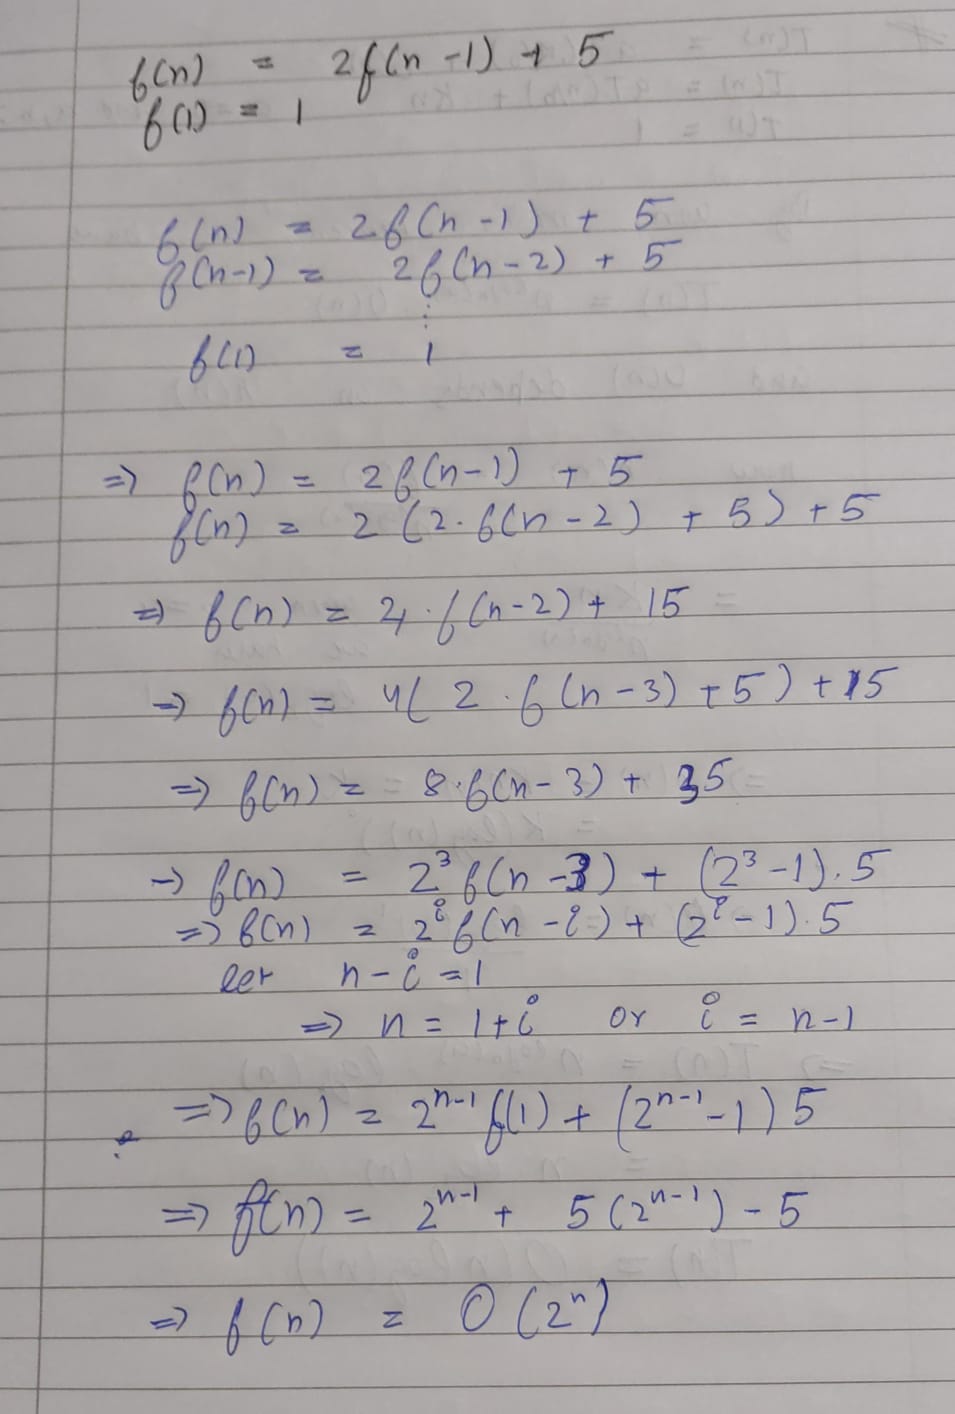 f(n) = 2f(n-1) + 5
f(1) = 1
f(n) = 2f(n-1) + 5
f(n-1) = 2f(n-2) + 5
⋮
f(1) = 1
=> f(n) = 2f(n-1) + 5
f(n) = 2(2.f(n-2) + 5) + 5
=> f(n) = 4.f(n-2) + 15
=> f(n) = 4(2.f(n-3) + 5) + 15
=> f(n) = 8.f(n-3) + 35
=> f(n) = 2³f(n-3) + (2³-1).5
=> f(n) = 2ⁱf(n-i) + (2ⁱ-1).5
let n-i = 1
=> n = 1+i or i = n-1
=> f(n) = 2ⁿ⁻¹f(1) + (2ⁿ⁻¹-1)5
=> f(n) = 2ⁿ⁻¹ + 5(2ⁿ⁻¹) - 5
=> f(n) = O(2ⁿ)